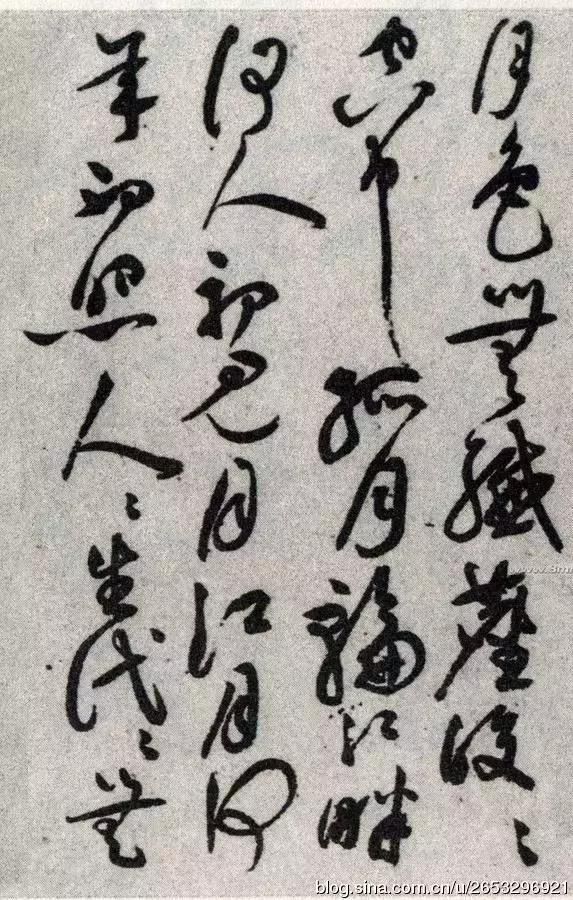 月色無纖塵皎々
空中孤月輪江畔
何人初見月江月何
年初照人々生代々無
blog.sina.com.cn/u/2653296921